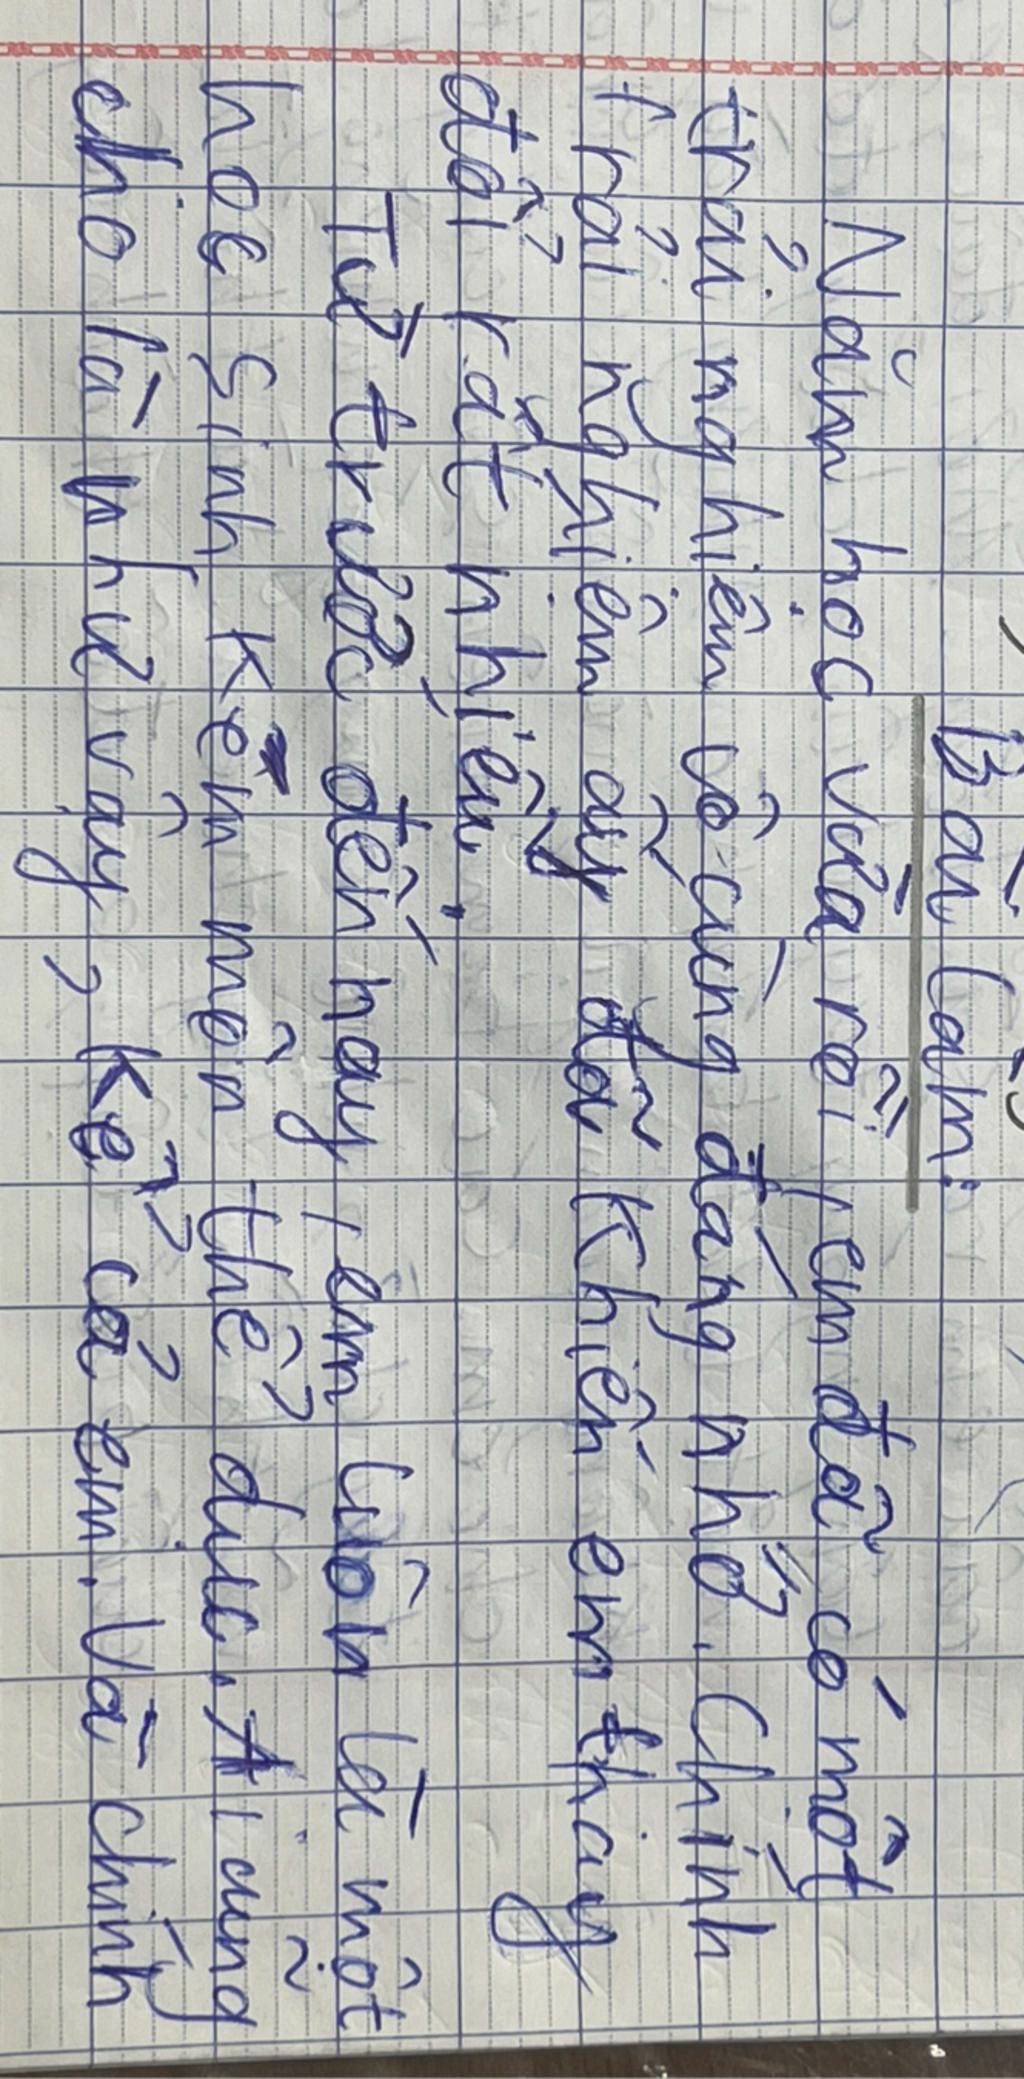 Bài làm:
Năm học vừa rồi, em đã có một
trải nghiệm vô cùng đáng nhớ. Chính
trải nghiệm ấy đã khiến em thay
đổi rất nhiều.
Từ trước đến nay, em luôn là một
học sinh kém môn thể dục. Ai cũng
cho là như vậy, kể cả em. Và chính